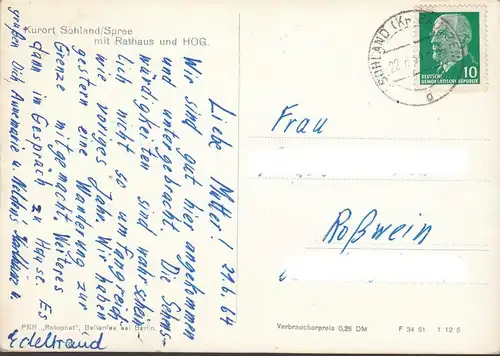 Kurort Sohland/Spree
mit Rathaus und HOG.
Liebe Mutter! 21.6.64
Wir sind gut hier angekommen
und untergebracht. Die Sehens-
würdigkeiten sind wahrschein-
lich nicht so umfangreich
wie voriges Jahr. Wir haben
gestern eine Wanderung zur
Grenze mitgemacht. Weiteres
dann im Gespräch zu Hause. Es
grüßen Dich Annemarie u.
Edeltraud
SOHLAND (Kr.
DEUTSCHE
DEMOKRATISCHE REPUBLIK
10
Frau
Roßwein
PGH "Rotophot", Bestensee bei Berlin.
Verbraucherpreis 0,25 DM
F 34 51 1 12 5